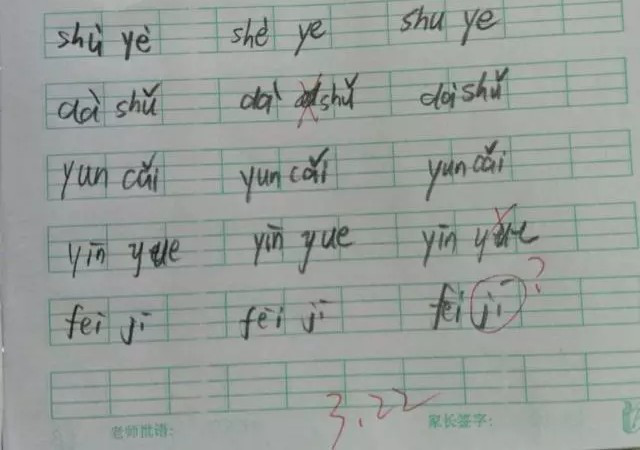 shù yè shè ye shu ye
dà shǔ dà shǔ dà shǔ
yun cǎi yun cǎi yun cǎi
yīn yue yīn yue yīn yue
fēi jī fēi jī fēi jī ?
3.22
老师批语: 家长签字: